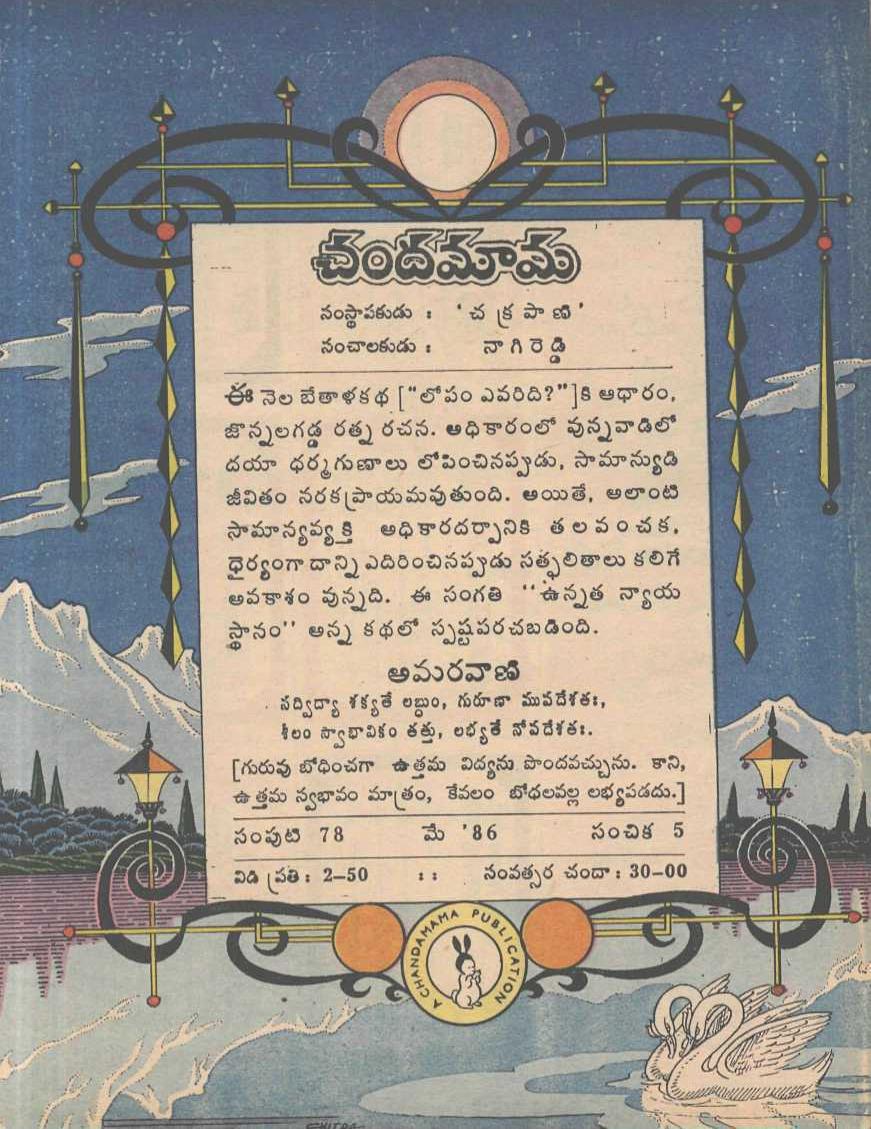 చందమామ
సంస్థాపకుడు : 'చక్రపాణి'
సంచాలకుడు : నాగిరెడ్డి
ఈ నెల బేతాళకథ ["లోపం ఎవరిది?"]కి ఆధారం,
జొన్నలగడ్డ రత్న రచన. అధికారంలో వున్నవాడిలో
దయా ధర్మగుణాలు లోపించినప్పుడు, సామాన్యుడి
జీవితం నరకప్రాయమవుతుంది. అయితే, అలాంటి
సామాన్యవ్యక్తి అధికారదర్పానికి తలవంచక,
ధైర్యంగా దాన్ని ఎదిరించినప్పుడు సత్ఫలితాలు కలిగే
అవకాశం వున్నది. ఈ సంగతి "ఉన్నత న్యాయ
స్థానం" అన్న కథలో స్పష్టపరచబడింది.
అమరవాణి
సద్విద్యా శక్యతే లబ్ధుం, గురూణా ముపదేశతః,
శీలం స్వాభావికం తత్తు, లభ్యతే నోపదేశతః.
[గురువు బోధించగా ఉత్తమ విద్యను పొందవచ్చును. కాని,
ఉత్తమ స్వభావం మాత్రం, కేవలం బోధలవల్ల లభ్యపడదు.]
సంపుటి 78 మే '86 సంచిక 5
విడి ప్రతి : 2-50 :: సంవత్సర చందా : 30-00
A CHANDAMAMA PUBLICATION